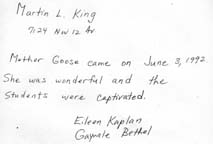 Martin L. King
7124 NW 12 Av
Mother Goose came on June 3, 1992
She was wonderful and the
Students were captivated.
Eileen Kaplan
Gaynale Bethel